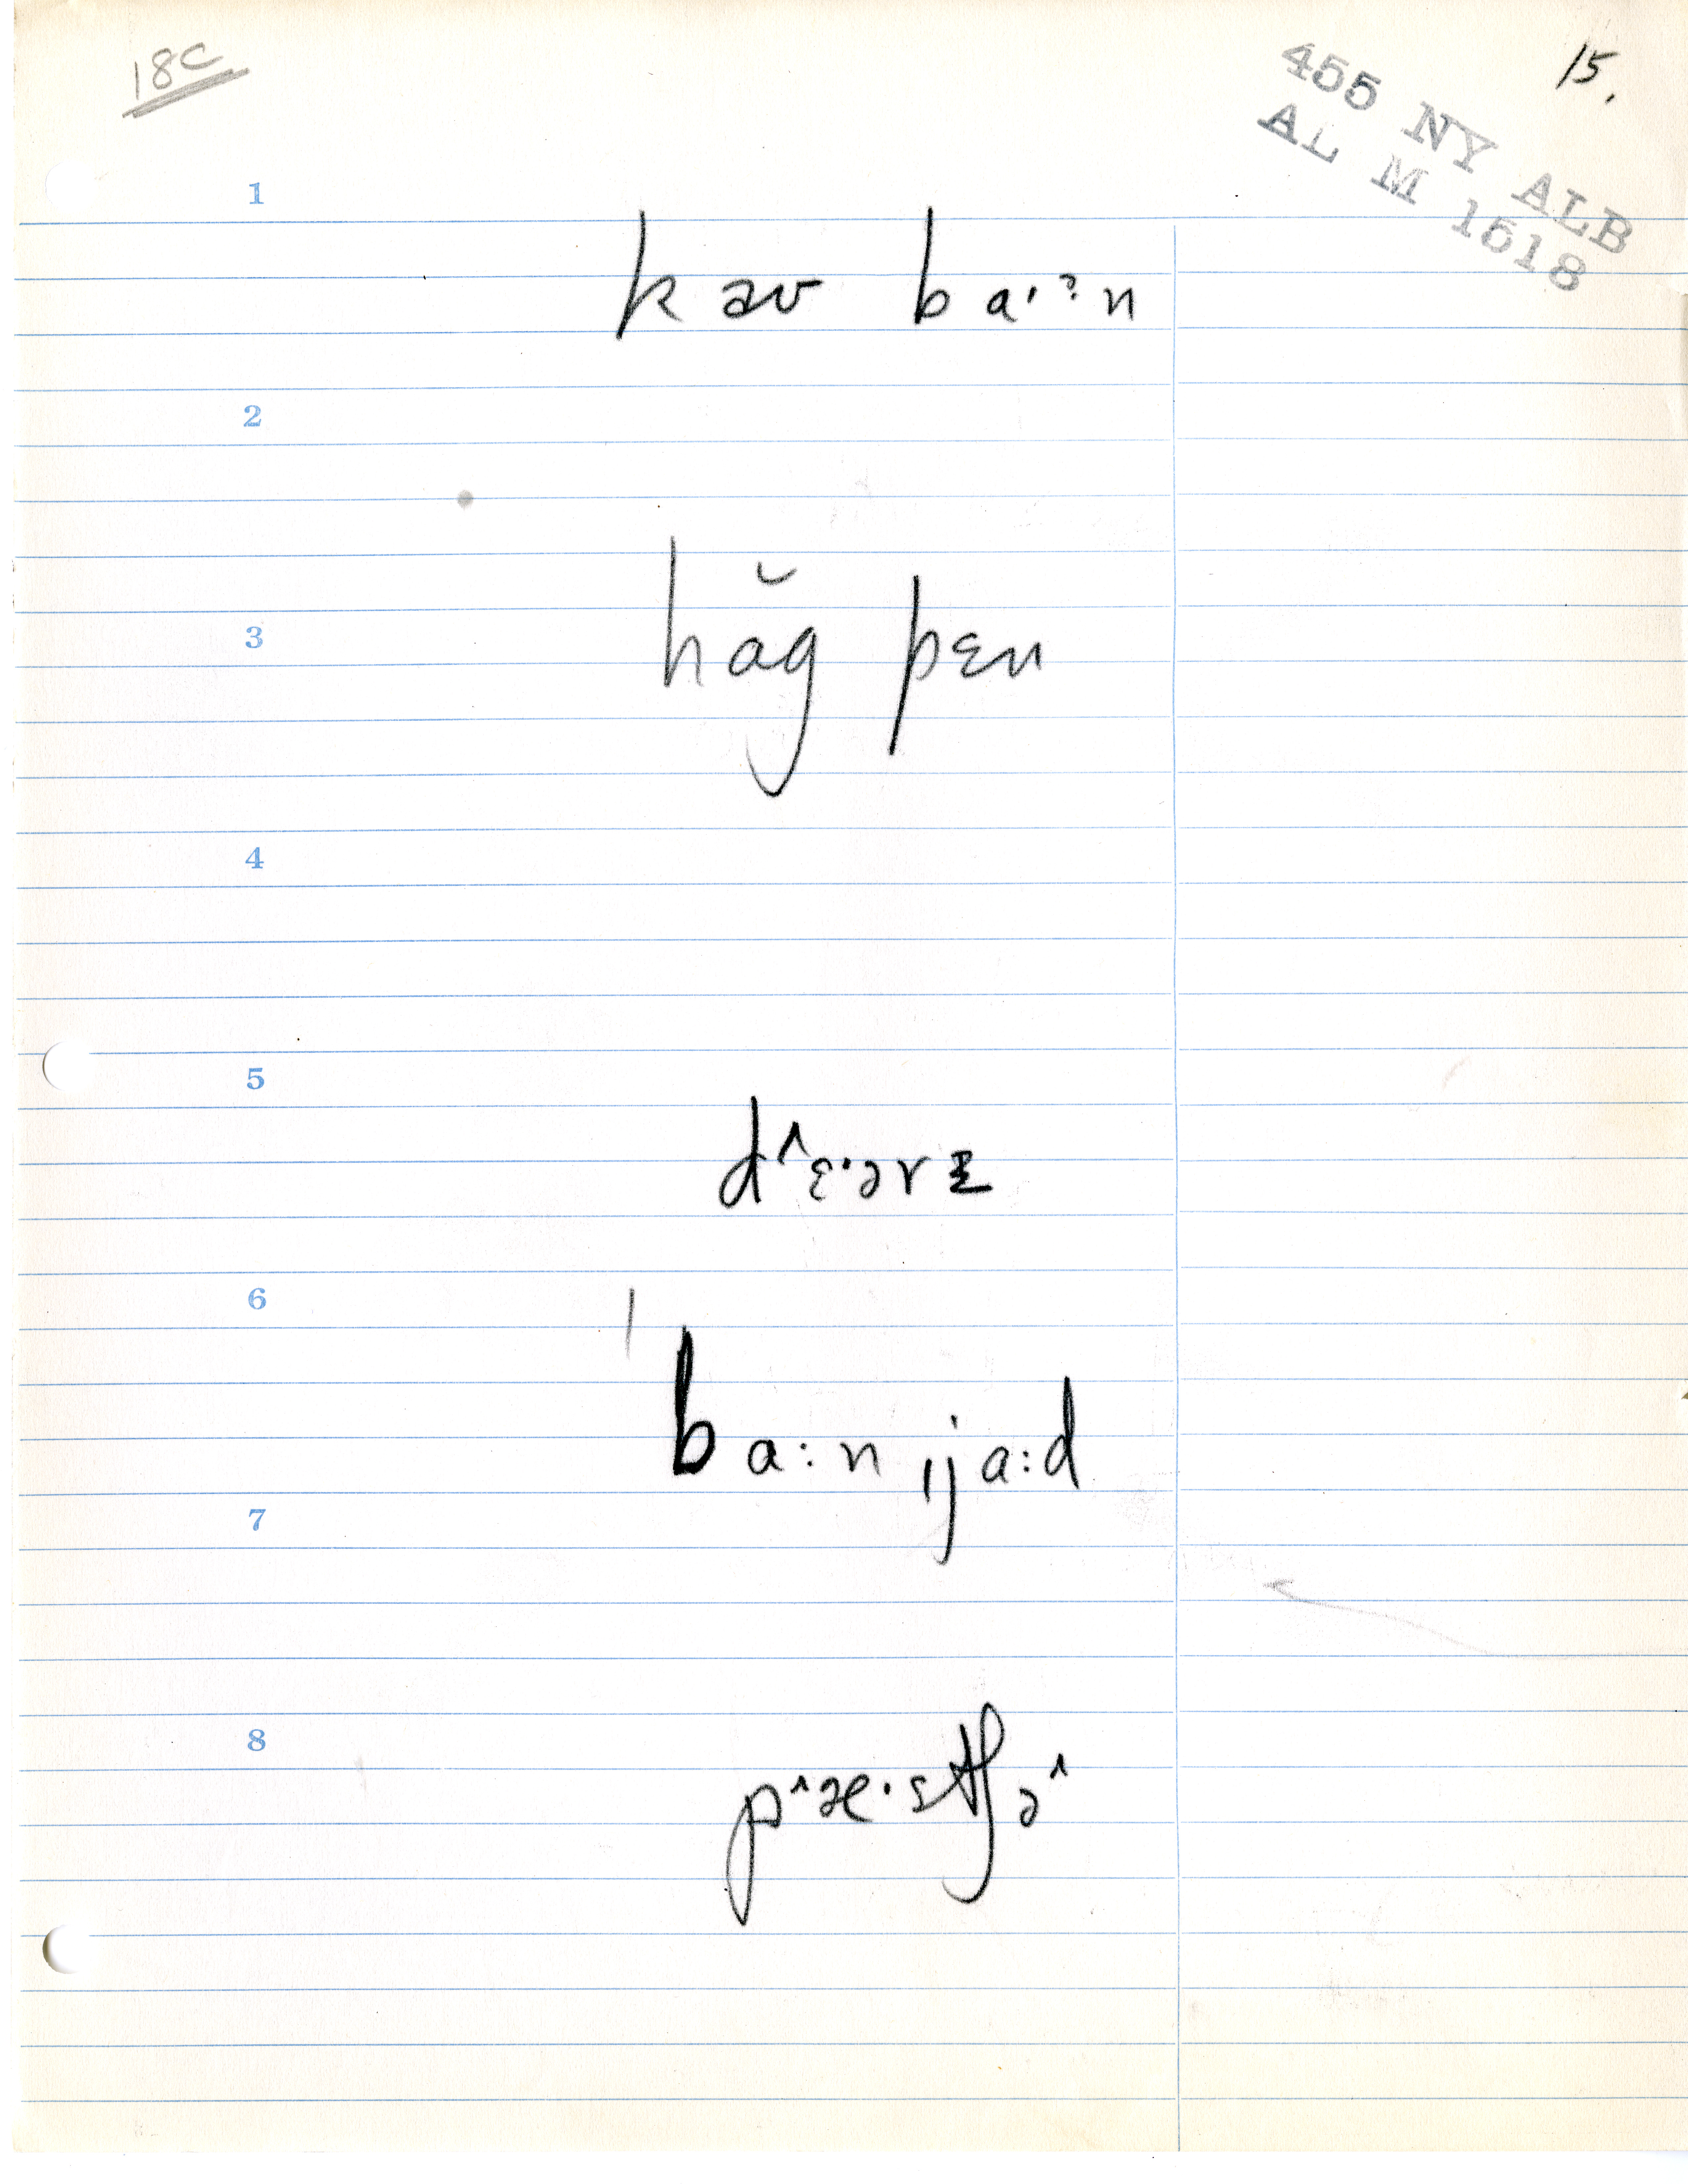 18C
15.
455 NY ALB
AL M 1518
1
kæʊ baˑˀn
2
hăg pɛn
3
4
5
d^ɛ·ərɪ
6
ˈba:n ɪja:d
7
8
p^æ·stʃə^